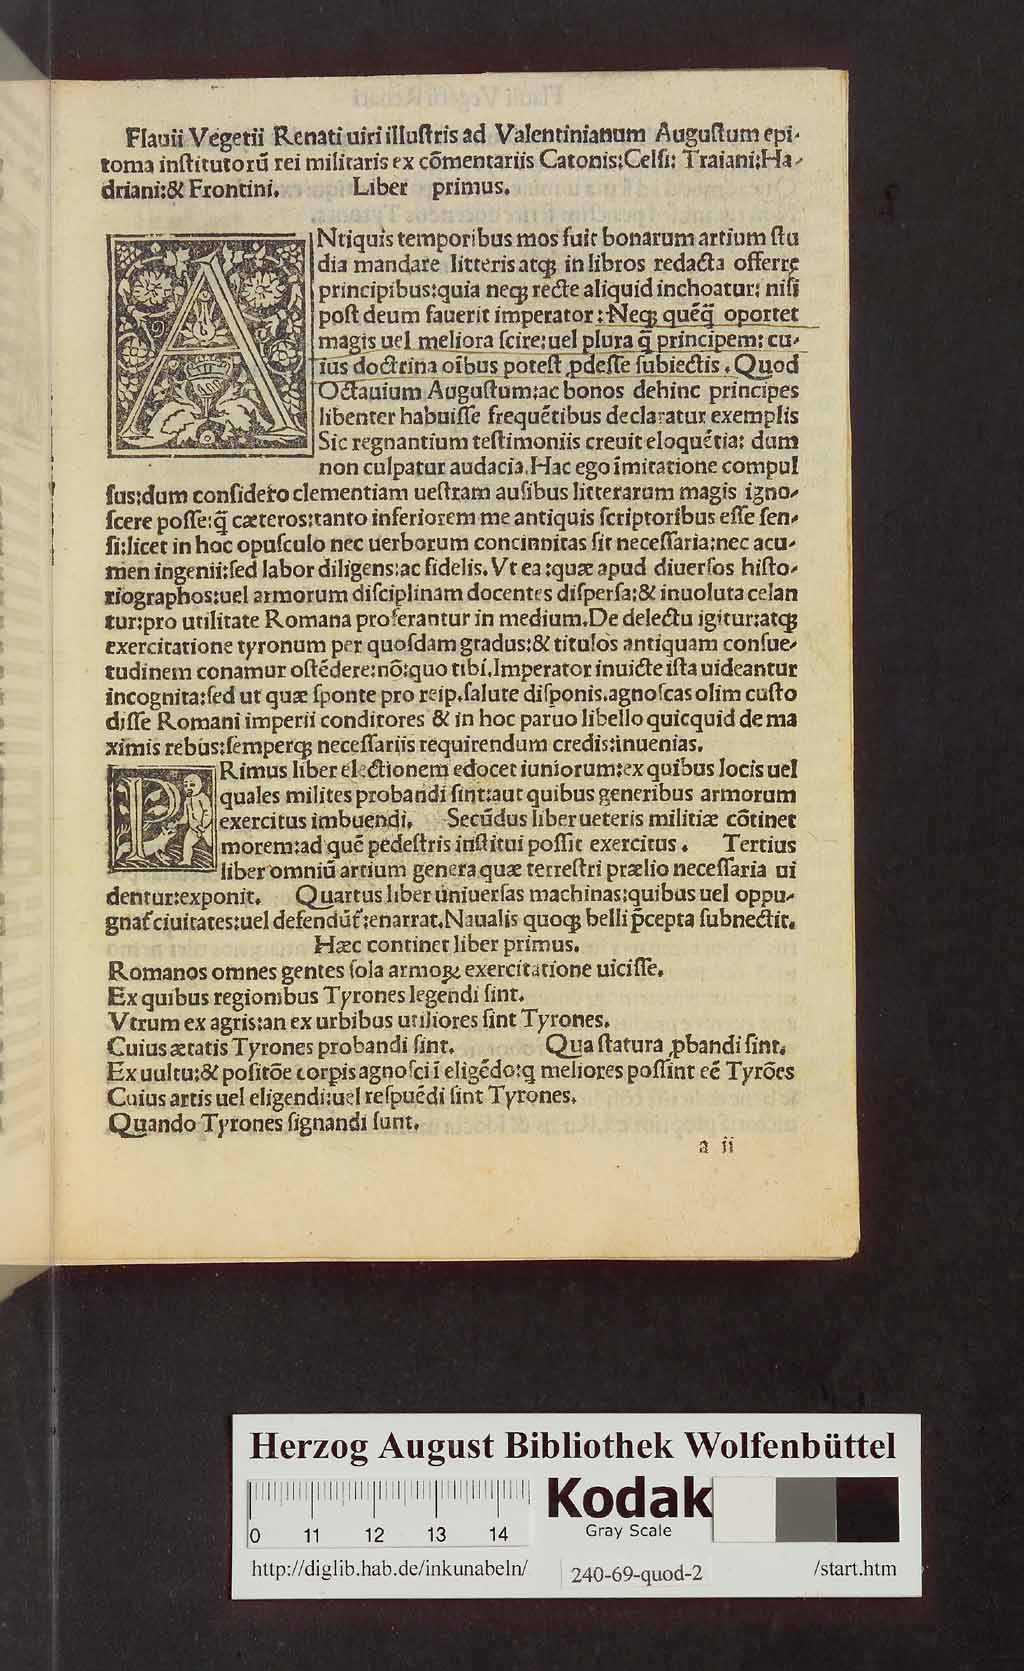 Flauii Vegetii Renati uiri illuſtris ad Valentinianum Auguſtum epi-
toma inſtitutorū rei militaris ex cōmentariis Catonis: Celſi: Traiani: Ha-
driani: & Frontini. Liber primus.
ANtiquis temporibus mos fuit bonarum artium ſtu
dia mandare litteris atq; in libros redacta offerre
principibus: quia neq; recte aliquid inchoatur: niſi
poſt deum fauerit imperator: Neq; quēq̄ oportet
magis uel meliora ſcire: uel plura q̄ principem: cu-
ius doctrina oībus poteſt ꝓdeſſe ſubiectis. Quod
Octauium Auguſtum: ac bonos dehinc principes
libenter habuiſſe frequētibus declaratur exemplis
Sic regnantium teſtimoniis creuit eloquētia: dum
non culpatur audacia. Hac ego īmitatione compul
ſus: dum conſidero clementiam ueſtram auſibus litterarum magis igno-
ſcere poſſe: q̄ cæteros: tanto inferiorem me antiquis ſcriptoribus eſſe ſen-
ſi: licet in hoc opuſculo nec uerborum concinnitas ſit neceſſaria: nec acu-
men ingenii: ſed labor diligens: ac fidelis. Vt ea: quæ apud diuerſos hiſto-
riographos: uel armorum diſciplinam docentes diſperſa: & inuoluta celan
tur: pro utilitate Romana proferantur in medium. De delectu igitur: atq;
exercitatione tyronum per quoſdam gradus: & titulos antiquam conſue-
tudinem conamur oſtēdere: nō: quo tibi. Imperator inuicte iſta uideantur
incognita: ſed ut quæ ſponte pro reip. ſalute diſponis. agnoſcas olim cuſto
diſſe Romani imperii conditores & in hoc paruo libello quicquid de ma
ximis rebus: ſemperq; neceſſariis requirendum credis: inuenias.
PRimus liber electionem edocet iuniorum: ex quibus locis uel
quales milites probandi ſint: aut quibus generibus armorum
exercitus imbuendi. Secūdus liber ueteris militiæ cōtinet
morem: ad quē pedeſtris inſtitui poſſit exercitus. Tertius
liber omniū artium genera quæ terreſtri prælio neceſſaria ui
dentur: exponit. Quartus liber uniuerſas machinas: quibus uel oppu-
gnat̄ ciuitates: uel defendūt̄: enarrat. Naualis quoq; belli p̄cepta ſubnectit.
Hæc continet liber primus.
Romanos omnes gentes ſola armoꝝ exercitatione uiciſſe.
Ex quibus regionibus Tyrones legendi ſint.
Vtrum ex agris: an ex urbibus utiliores ſint Tyrones.
Cuius ætatis Tyrones probandi ſint. Qua ſtatura ꝓbandi ſint.
Ex uultu: & poſitōe corpis agnoſci ī eligēdo: q meliores poſſint eē Tyrōes
Cuius artis uel eligendi: uel reſpuēdi ſint Tyrones.
Quando Tyrones ſignandi ſunt.
a ii
Herzog August Bibliothek Wolfenbüttel
0 11 12 13 14
Kodak
Gray Scale
http://diglib.hab.de/inkunabeln/ 240-69-quod-2 /start.htm